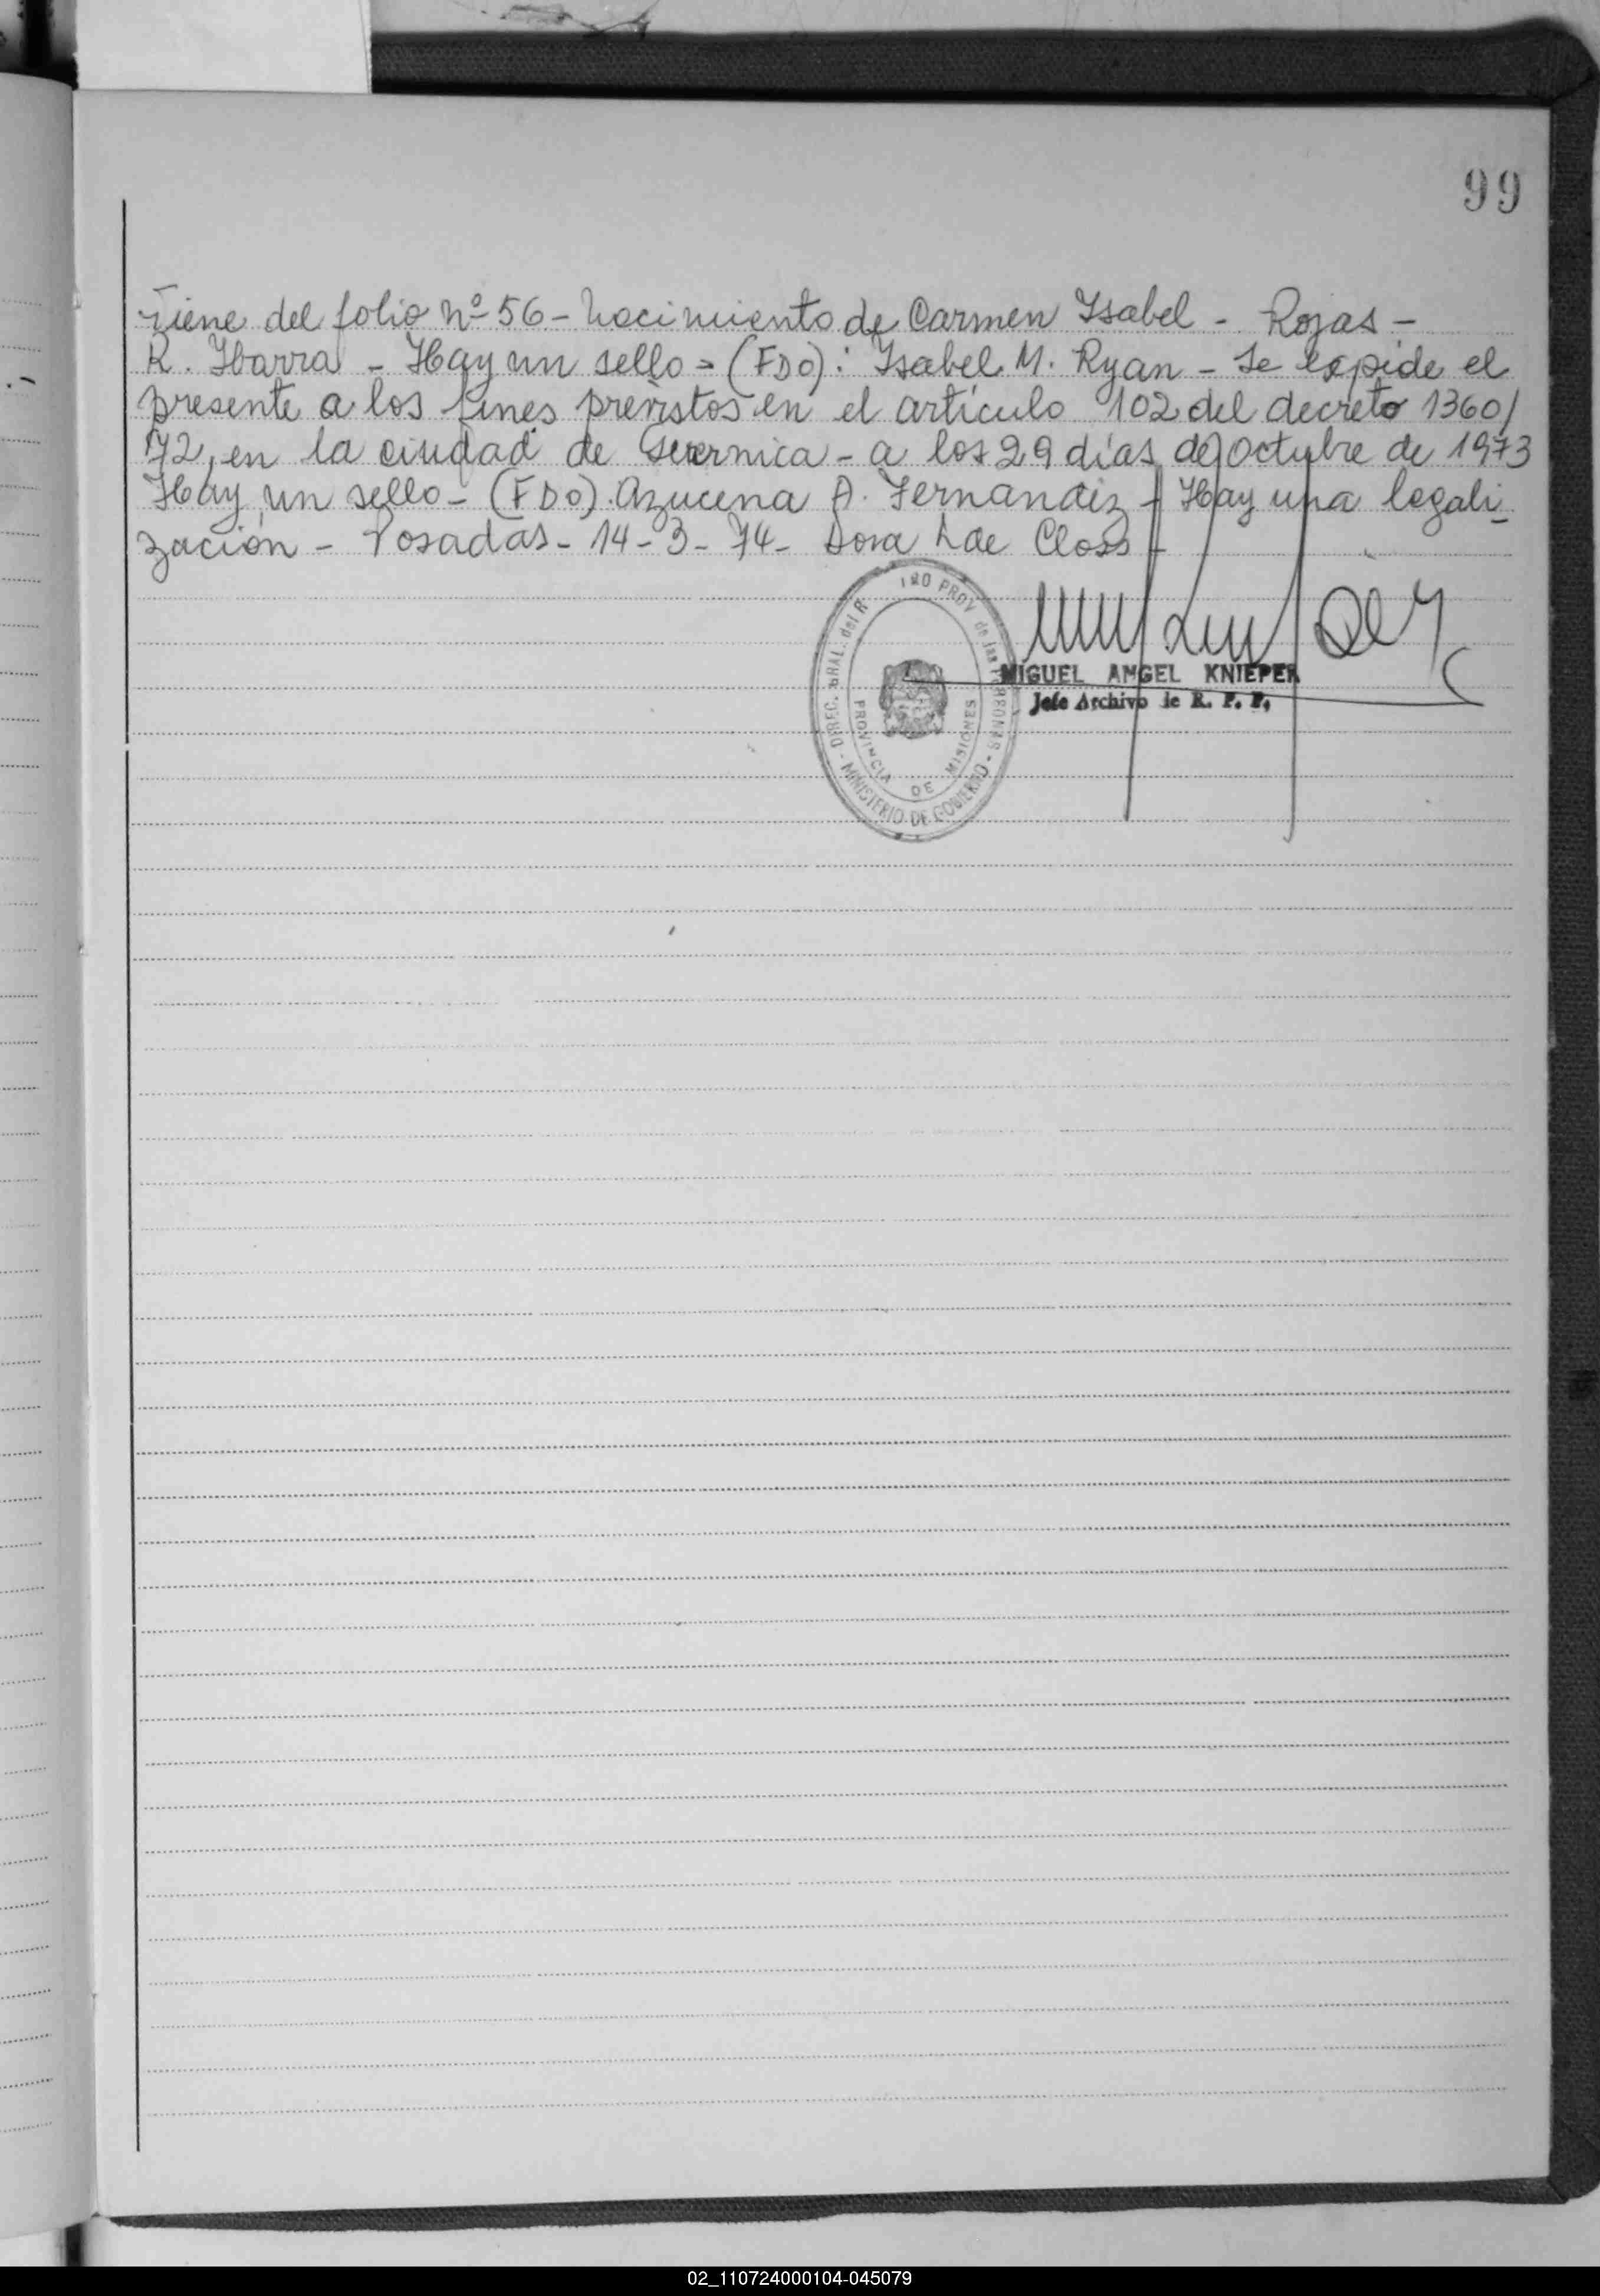 99
Viene del folio nº 56 - Nacimiento de Carmen Isabel - Rojas -
R. Ibarra - Hay un sello = (FDO): Isabel M. Ryan - Se expide el
presente a los fines previstos en el artículo 102 del decreto 1360/
72, en la ciudad de Guernica - a los 29 días de Octubre de 1973
Hay un sello - (FDO). Azucena A. Fernandez - Hay una legali_
zación - Posadas - 14 - 3 - 74 - Dora L de Closs -
DIREC. GRAL. del R PROV de las PERSONAS - MINISTERIO DE GOBIERNO -
PROVINCIA DE MISIONES
MIGUEL ANGEL KNIEPER
Jefe Archivo de R. P. P.
02_110724000104-045079